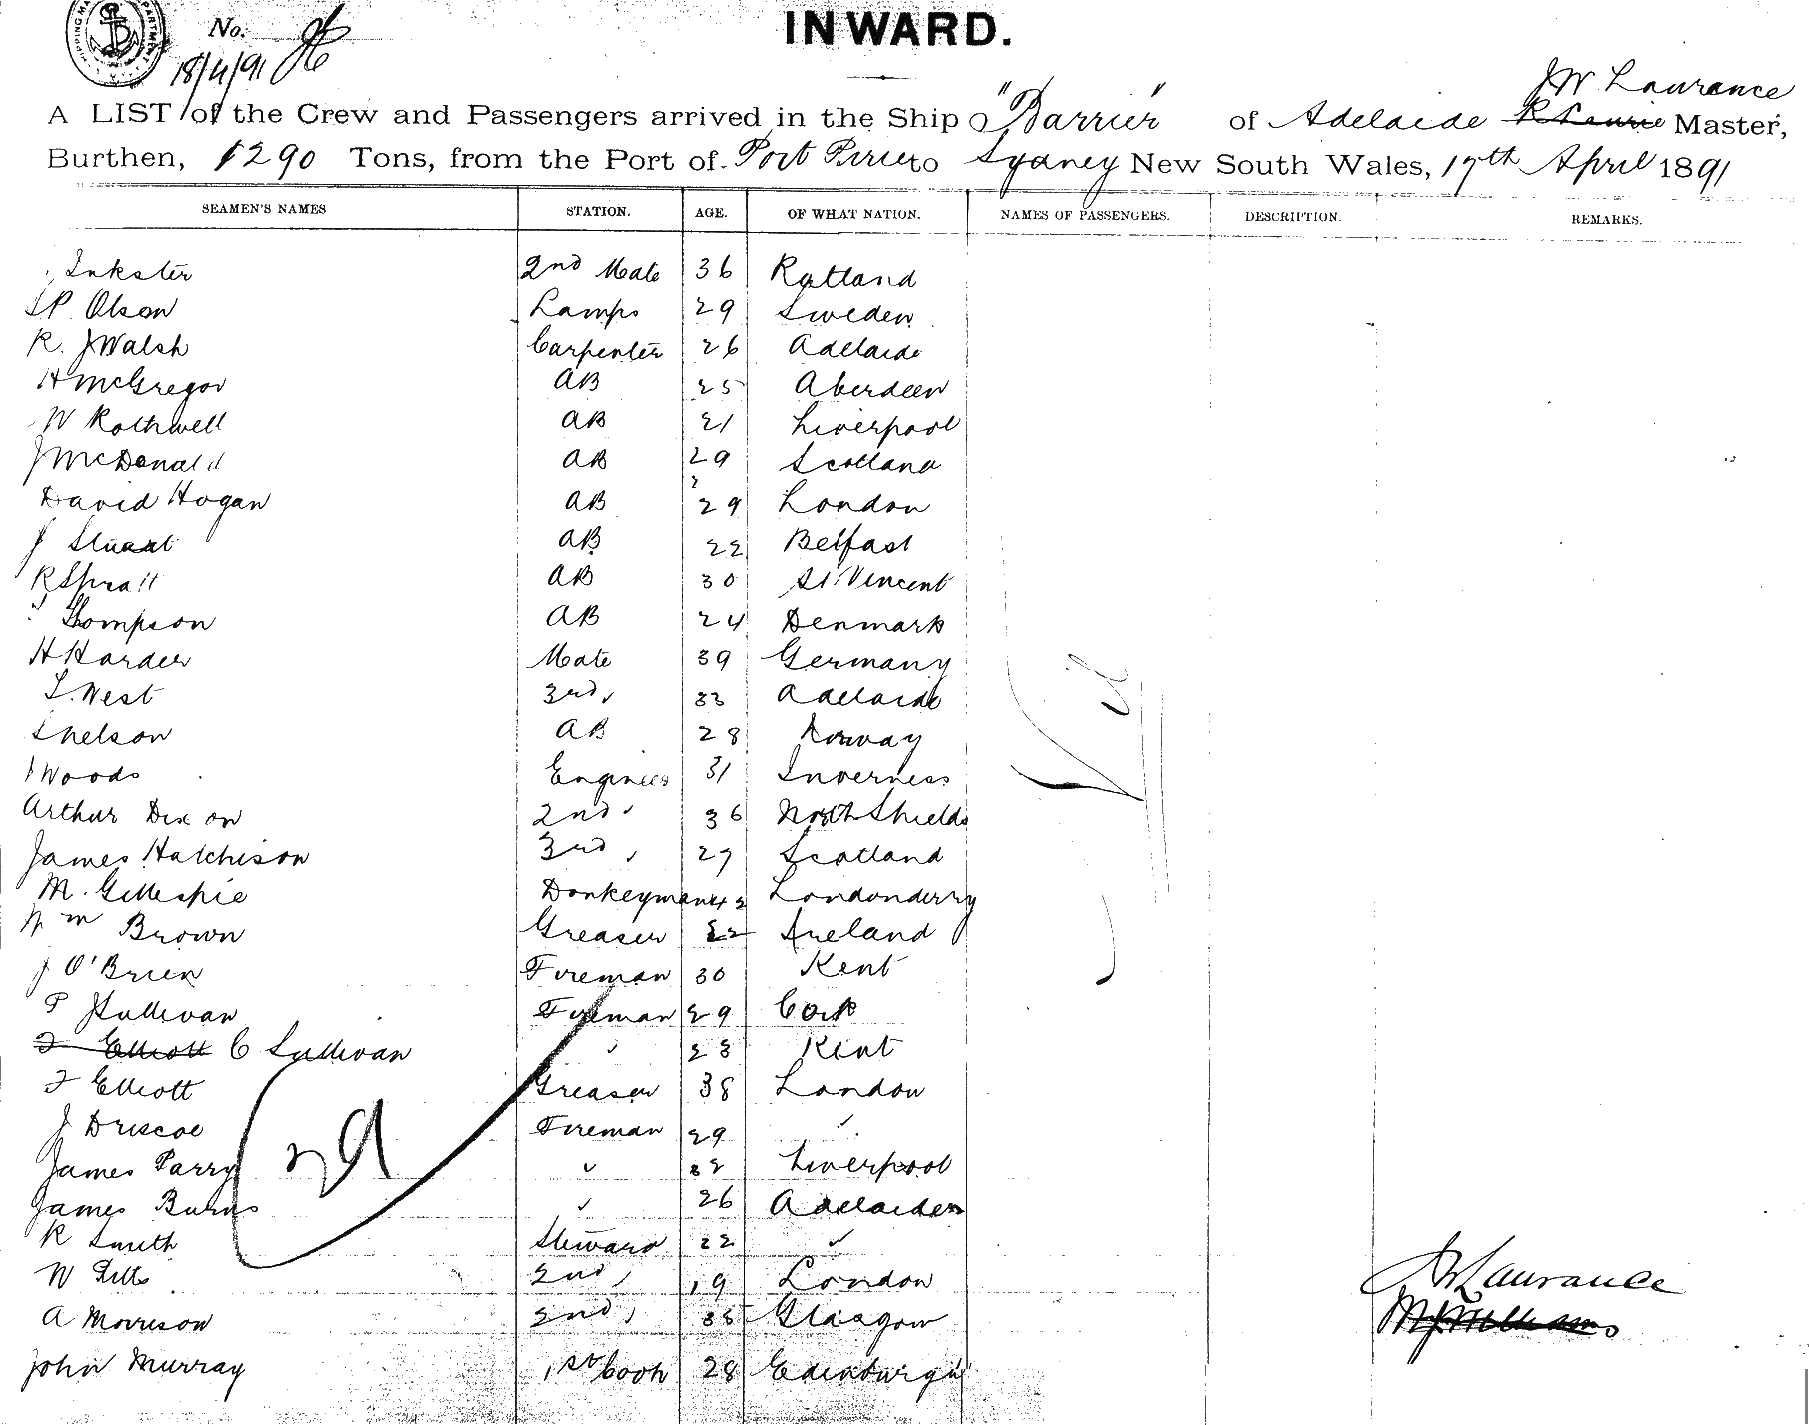 No.
INWARD.
18/4/91
J W Lawrance
A LIST of the Crew and Passengers arrived in the Ship "Barrier" of Adelaide Master,
Burthen, 1290 Tons, from the Port of Port Pirie to Sydney New South Wales, 17th April 1891
SEAMEN'S NAMES STATION. AGE. OF WHAT NATION. NAMES OF PASSENGERS. DESCRIPTION. REMARKS.
Inkster 2nd Mate 36
J P Olson Lamps 29 Sweden
R. J Walsh Carpenter 26 Adelaide
H McGregor AB 25 Aberdeen
W Rothwell AB 21 Liverpool
J McDonald AB 29 Scotland
David Hogan AB 29 London
J Stuart AB 22 Belfast
R Spratt AB 30 St. Vincent
Thompson AB 24 Denmark
H Harder Mate 39 Germany
L. West 3rd " 33 Adelaide
Nelson AB 28 Norway
J Woods Engineer 31 Inverness
Arthur Dixon 2nd " 36 North Shields
James Hatchison 3rd " 27 Scotland
M. Gillespie Donkeyman 42 Londonderry
Wm Brown Greaser 22 Ireland
J O'Brien Fireman 30 Kent
P Sullivan Fireman 29 Cork
F Elliott C Sullivan " 28 Kent
F Elliott Greaser 38 London
J Driscoe Fireman 29 "
James Parry " 32 Liverpool
29
James Burns " 26 Adelaide
R Smith Steward 22 "
W 2nd " 19 London
A Morrison 2nd " 35 Glasgow
John Murray 1st Cook 28 Edinburgh
Nil
J W Lawrance